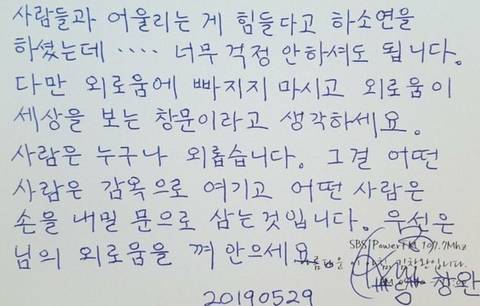 사람들과 어울리는 게 힘들다고 하소연을
하셨는데 ···· 너무 걱정 안하셔도 됩니다.
다만 외로움에 빠지지 마시고 외로움이
세상을 보는 창문이라고 생각하세요.
사람은 누구나 외롭습니다. 그걸 어떤
사람은 감옥으로 여기고 어떤 사람은
손을 내밀 문으로 삼는것입니다. 우선은
님의 외로움을 껴 안으세요
SBS Power FM 107.7Mhz
아름다운 이 아침 김창완입니다.
창완
20190529